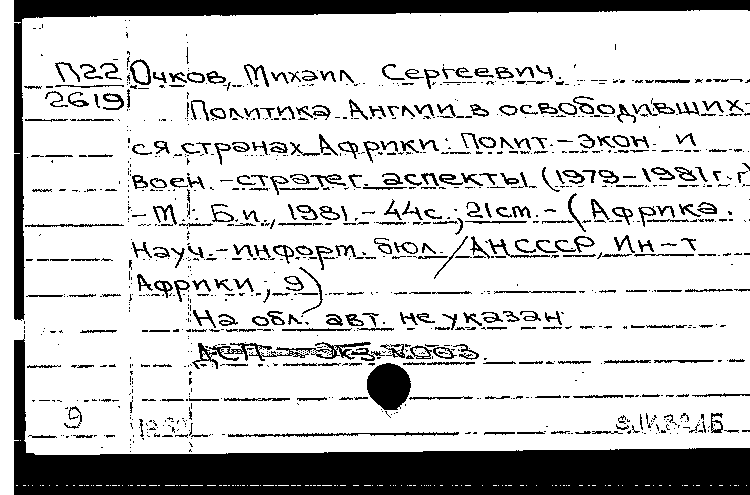 П22 Очков, Михаил Сергеевич.
2619 Политика Англии в освободивших-
ся странах Африки: Полит.-экон. и
воен.-стратег. аспекты (1979-1981г.г)
-М.: Б.и., 1981.-44с.; 21см.-(Африка.
Науч.-информ. бюл. /АН СССР, Ин-т
Африки; 9)
На обл. авт. не указан
ДСП - Экз. №003
9